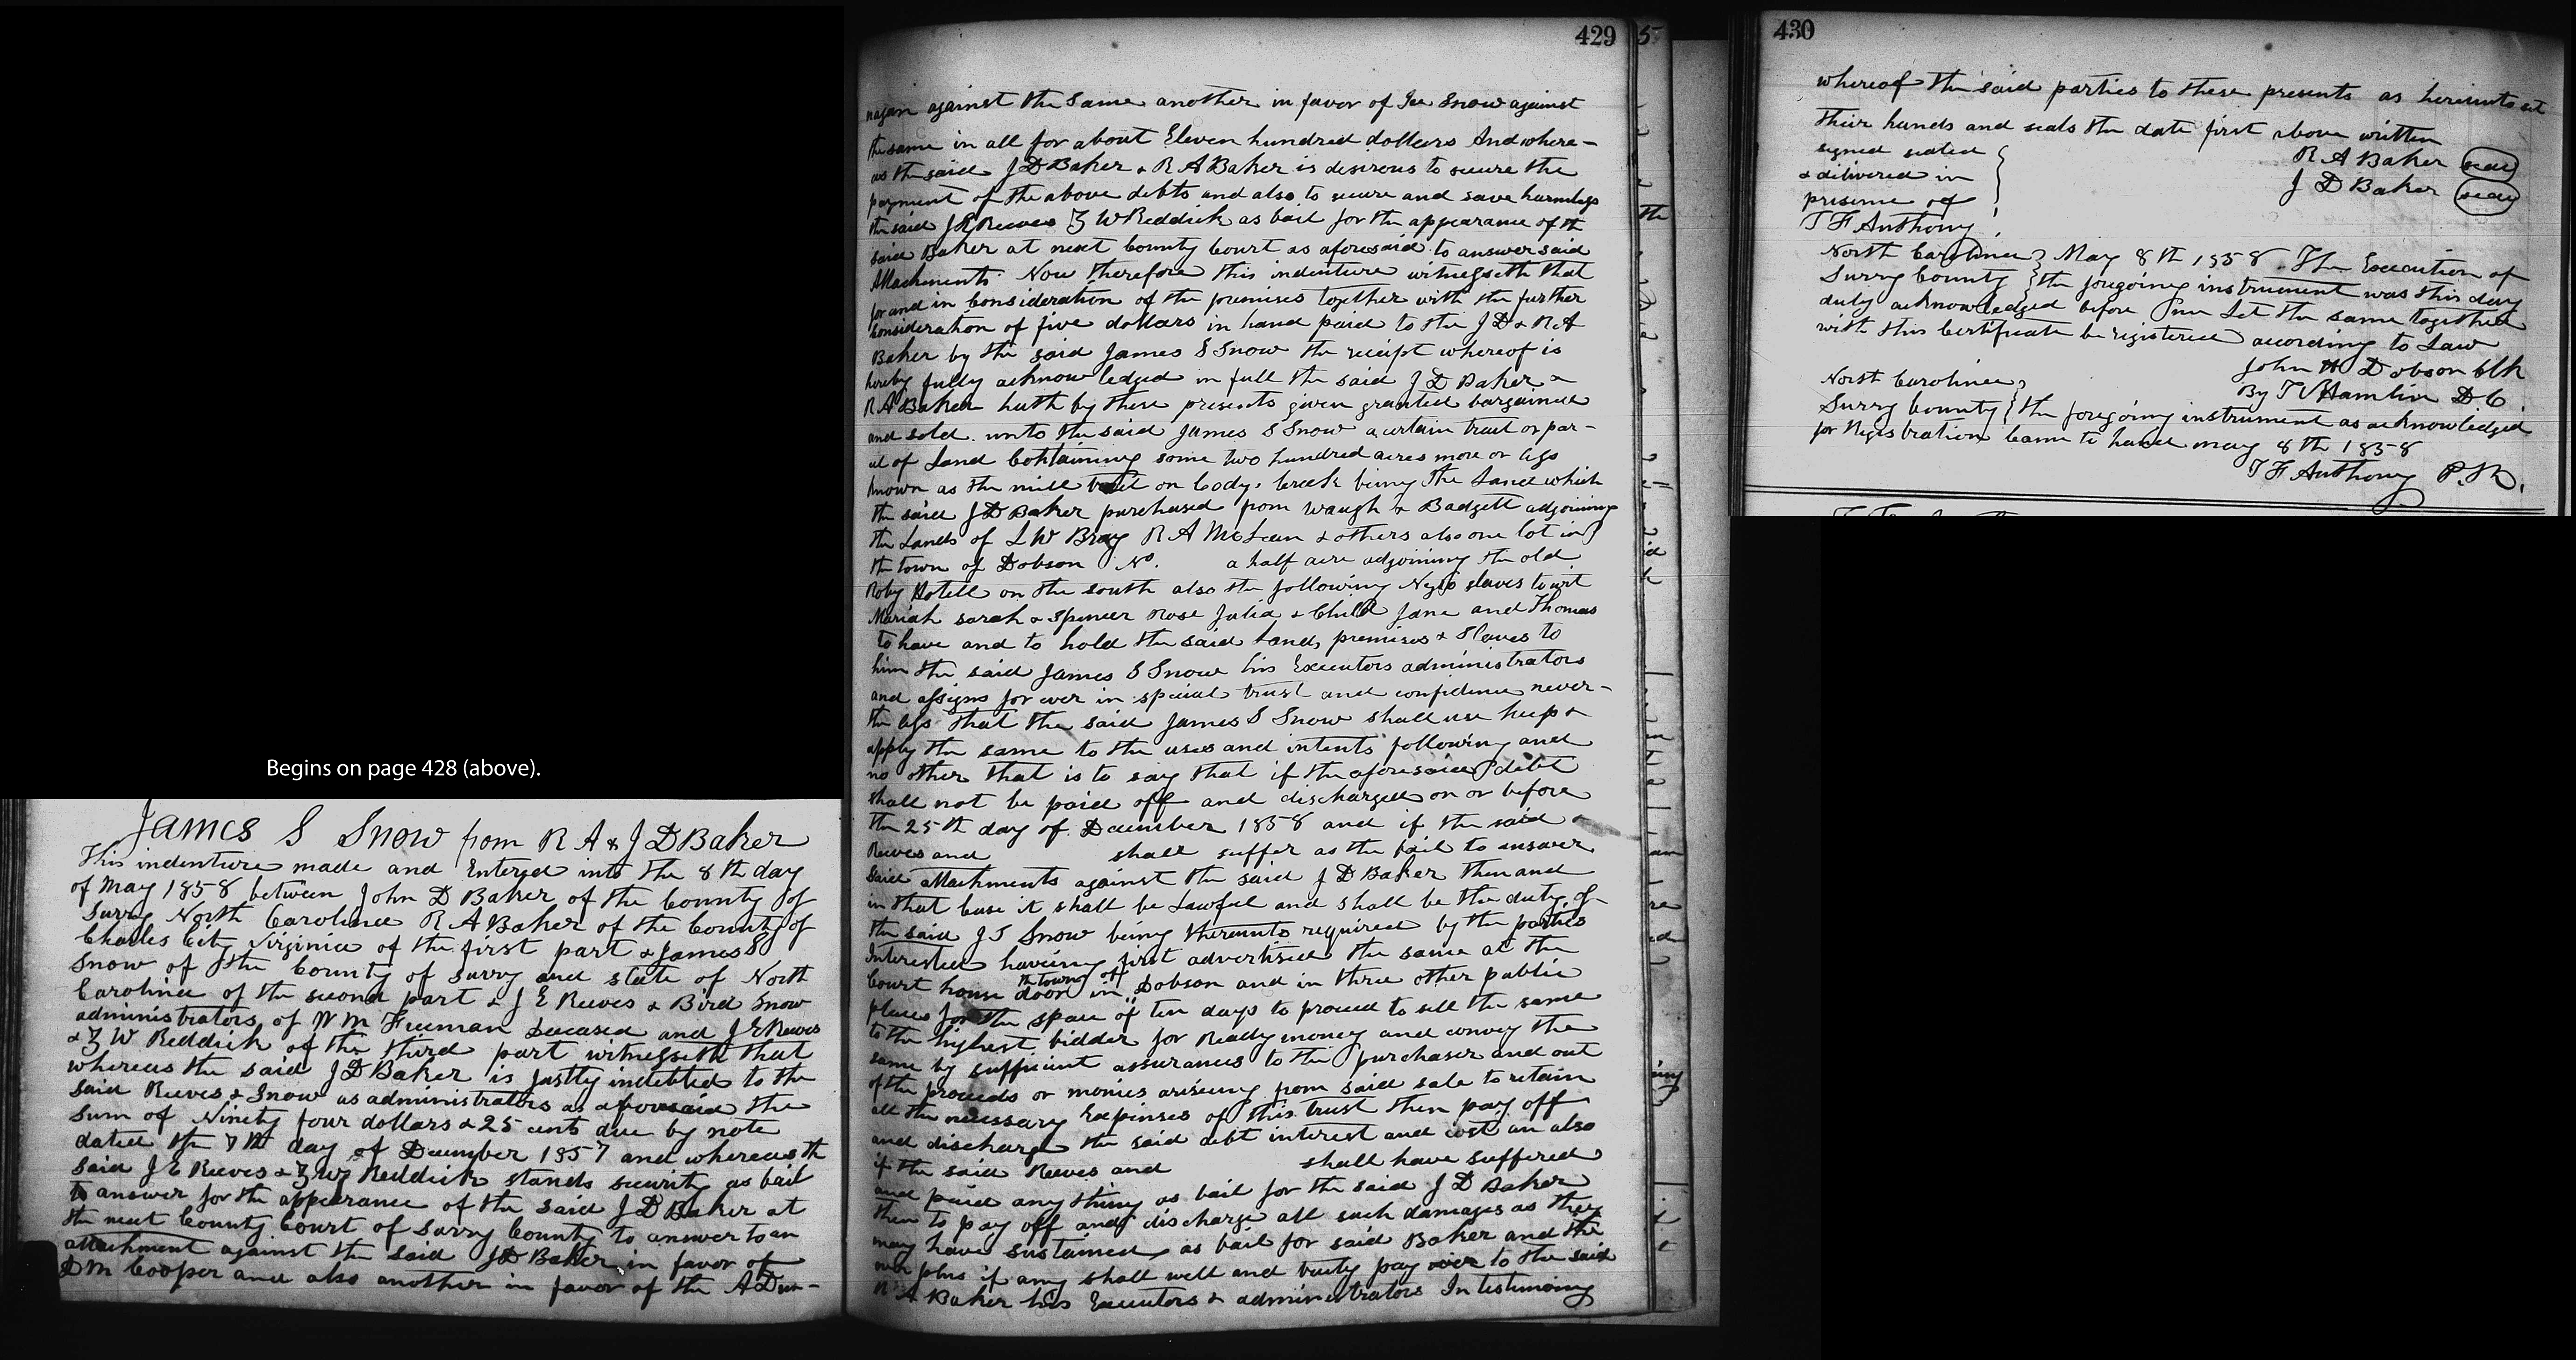 Begins on page 428 (above).
James S Snow from R A & J D Baker
This indenture made and Entered into the 8th day
of May 1858 between John D Baker of the County of
Surry North Carolina R A Baker of the County of
Charles City Virginia of the first part & James S
Snow of the County of Surry and state of North
Carolina of the second part & J E Reeves & Bird Snow
administrators of W M Freeman deceased and J E Reeves
& Z W Reddick of the third part witnesseth that
whereas the said J D Baker is justly indebted to the
said Reeves & Snow as administrators as aforesaid the
sum of Ninety four dollars & 25 cents due by note
dated the 7th day of December 1857 and whereas th
said J E Reeves & Z W Reddick stands security as bail
to answer for the appearance of the said J D Baker at
the next County Court of Surry County to answer to an
attachment against the said J D Baker in favor of
D M Cooper and also another in favor of the A Dun-
429
nagan against the same another in favor of Ice Snow against
the same in all for about Eleven hundred dollars And where-
as the said J D Baker & R A Baker is desirous to secure the
payment of the above debts and also to secure and save harmless
the said J E Reeves Z W Reddick as bail for the appearance of th
said Baker at next County Court as aforesaid to answer said
Attachments Now therefore this indenture witnesseth that
for and in Consideration of the premises together with the further
Consideration of five dollars in hand paid to the J D & R A
Baker by the said James S Snow the receipt whereof is
hereby fully acknowledged in full the said J D Baker &
R A Baker hath by these presents given granted bargained
and sold unto the said James S Snow a certain tract or par-
cel of Land Containing some two hundred acres more or less
known as the mill on Codys Creek being the Land which
the said J D Baker purchased from Waugh & Badgett adjoining
the Lands of L W Bray R A McLean & others also one lot in
the town of Dobson No. a half acre adjoining the old
Roby Hotell on the south also the following Negro slaves to wit
Mariah sarah & Spencer Rose Julia & Child Jane and Thomas
to have and to hold the said Land, premises & Slaves to
him the said James S Snow his Executors administrators
and assigns for ever in special trust and confidence never-
the less that the said James S Snow shall use keep &
apply the same to the uses and intents following and
no other that is to say that if the aforesaid debt
shall not be paid off and discharged on or before
the 25th day of December 1858 and if the said
Reeves and shall suffer as the bail to answer
said attachments against the said J D Baker then and
in that Case it shall be Lawful and shall be the duty of
the said J S Snow being thereunto required by the parties
Interested having first advertised the same at the
Court house door in the town of Dobson and in three other public
places for the space of ten days to proceed to sell the same
to the highest bidder for Ready money and convey the
same by sufficient assurances to the purchaser and out
of the proceeds or monies ariseing from said sale to retain
all the necessary Expenses of this trust then pay off
and discharge the said debt interest and cost an also
if the said Reeves and shall have suffered
and paid any thing as bail for the said J D Baker
then to pay off and discharge all such damages as they
may have sustained as bail for said Baker and the
over plus if any shall well and truly pay over to the said
R A Baker his Executors & administrators In testimony
430
whereof the said parties to these presents as hereunto set
their hands and seals the date first above written
signed sealed
& delivered in
presence of
T F Anthony
R A Baker seal
J D Baker seal
North Carolina May 8th 1858 The Execution of
Surry County the foregoing instrument was this day
duly acknowledged before me Let the same together
with this Certificate be registered according to Law
John H Dobson Clk
By T V Hamlin D C
North Carolina
Surry County the foregoing instrument as acknowledged
for Registration Came to hand may 8th 1858
T F Anthony P.R.